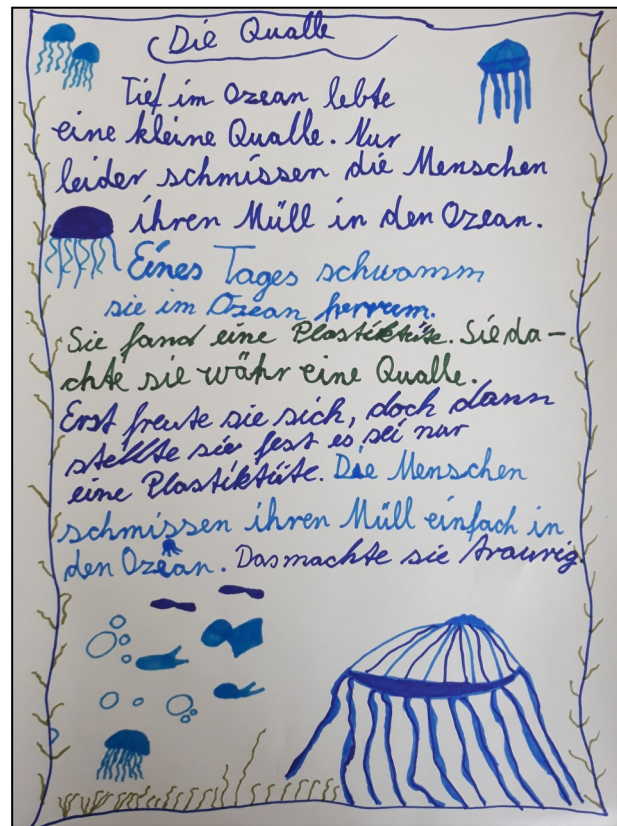 Die Qualle
Tief im Ozean lebte
eine kleine Qualle. Nur
leider schmissen die Menschen
ihren Müll in den Ozean.
Eines Tages schwamm
sie im Ozean herrum.
Sie fand eine Plastiktüte. Sie da-
chte sie währ eine Qualle.
Erst freute sie sich, doch dann
stellte sie fest es sei nur
eine Plastiktüte. Die Menschen
schmissen ihren Müll einfach in
den Ozean. Das machte sie traurig.